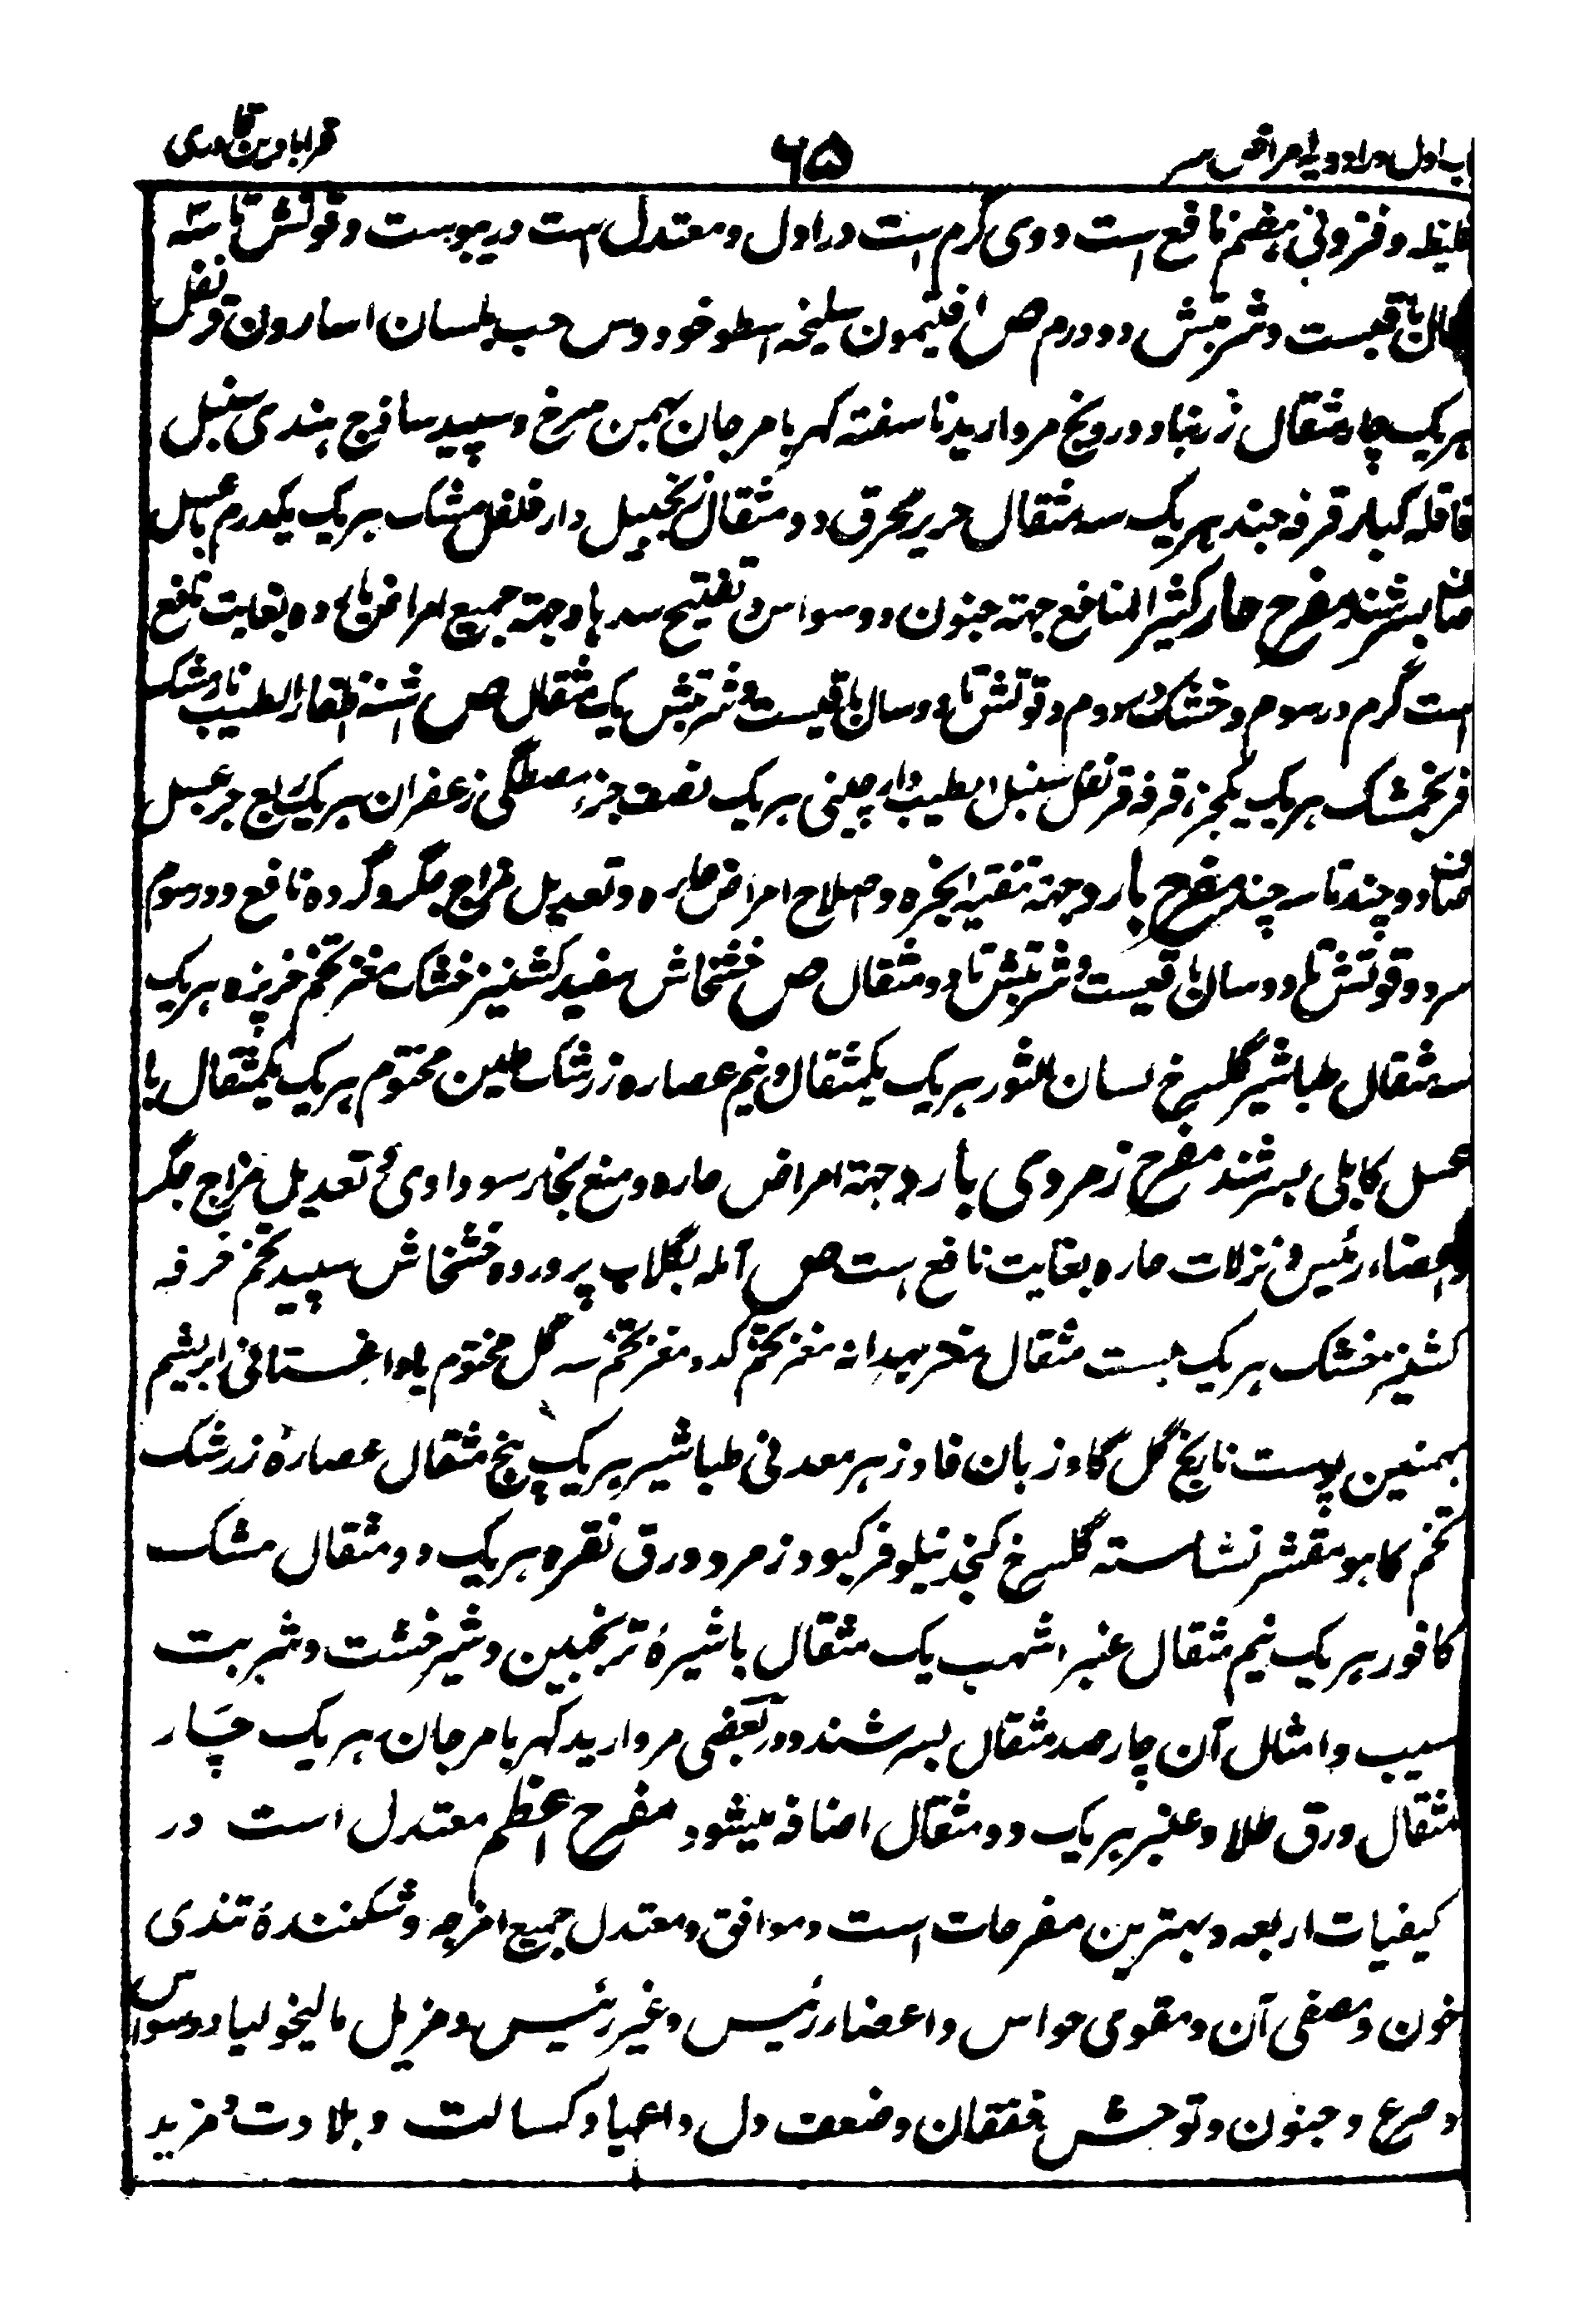 باب اول در ادویه امراض سر ۶۵ قرابادین قادری
غلیظه و فزونی هضم نافع است و وی گرم است در اول و معتدل است در یبوست و قوتش تا سه
سال باقیست و شربتش دو درم ص افتیمون سلیخه اسطوخودوس حب بلسان اسارون قرنفل
هریک چار مثقال زرنباد درونج مروارید ناسفته کهربا مرجان بهمن سرخ و سپید ساذج هندی سنبل
قاقله کبار قرفه جند هریک سه مثقال حریر محرق دو مثقال زنجبیل دارفلفل مشک هریک یکدرم با عسل
صاف بسرشند مفرح حار کثیر المنافع جهته جنون و وسواس و تفتیح سدها و جهته جمیع امراض بارده بغایت نافع
است گرم در سوم و خشک در دوم و قوتش تا دو سال باقیست و شربتش یک مثقال ص اشنه اظفار الطیب نارمشک
فرنجمشک هریک یکجزء قرفه قرنفل سنبل الطیب دارچینی هریک نصف جزء مصطگی زعفران هریک ربع جزء عسل
صاف دو چند تا سه چند مفرح بارد جهته تنقیه ابخره و صلاح امراض حاره و تعدیل مزاج جگر و گرده نافع و در سوم
سرد و قوتش تا دو سال باقیست و شربتش تا دو مثقال ص خشخاش سفید کشنیز خشک مغز تخم خرپزه هریک
سه مثقال طباشیر گلسرخ لسان الثور هریک یکمثقال و نیم عصاره زرشک طین مختوم هریک یکمثقال با
عسل کابلی بسرشند مفرح زمردی بارد جهته امراض حاره و منع بخار سوداوی و تعدیل مزاج جگر
و اعضاء رئیس و نزلات حاره بغایت نافع است ص آمله بگلاب پرورده خشخاش سپید تخم خرفه
کشنیز خشک هریک بیست مثقال مغز بهدانه مغز تخم کدو مغز تخم سه گل مختوم یا داغستانی ابریشم
بهمنین پوست نارنج گل گاوزبان فادزهر معدنی طباشیر هریک پنج مثقال عصارهٔ زرشک
تخم کاهو مقشر نشاسته گلسرخ کنجد نیلوفر کبود زمرد ورق نقره هریک دو مثقال مشک
کافور هریک نیم مثقال عنبر اشهب یک مثقال با شیرهٔ ترنجبین و شیرخشت و شربت
سیب و امثال آن چارصد مثقال بسرشند و در بعضی مروارید کهربا مرجان هریک چار
مثقال ورق طلا و عنبر هریک دو مثقال اضافه میشود مفرح اعظم معتدل است در
کیفیات اربعه و بهترین مفرحات است و موافق و معتدل جمیع امزجه و شکنندهٔ تندی
خون و مصفی آن و مقوی حواس و اعضاء رئیس و غیر رئیس و مزیل مالیخولیا و وسواس
و صرع و جنون و توحش خفقان و ضعف دل و اعیا و کسالت و بلادت و مزید